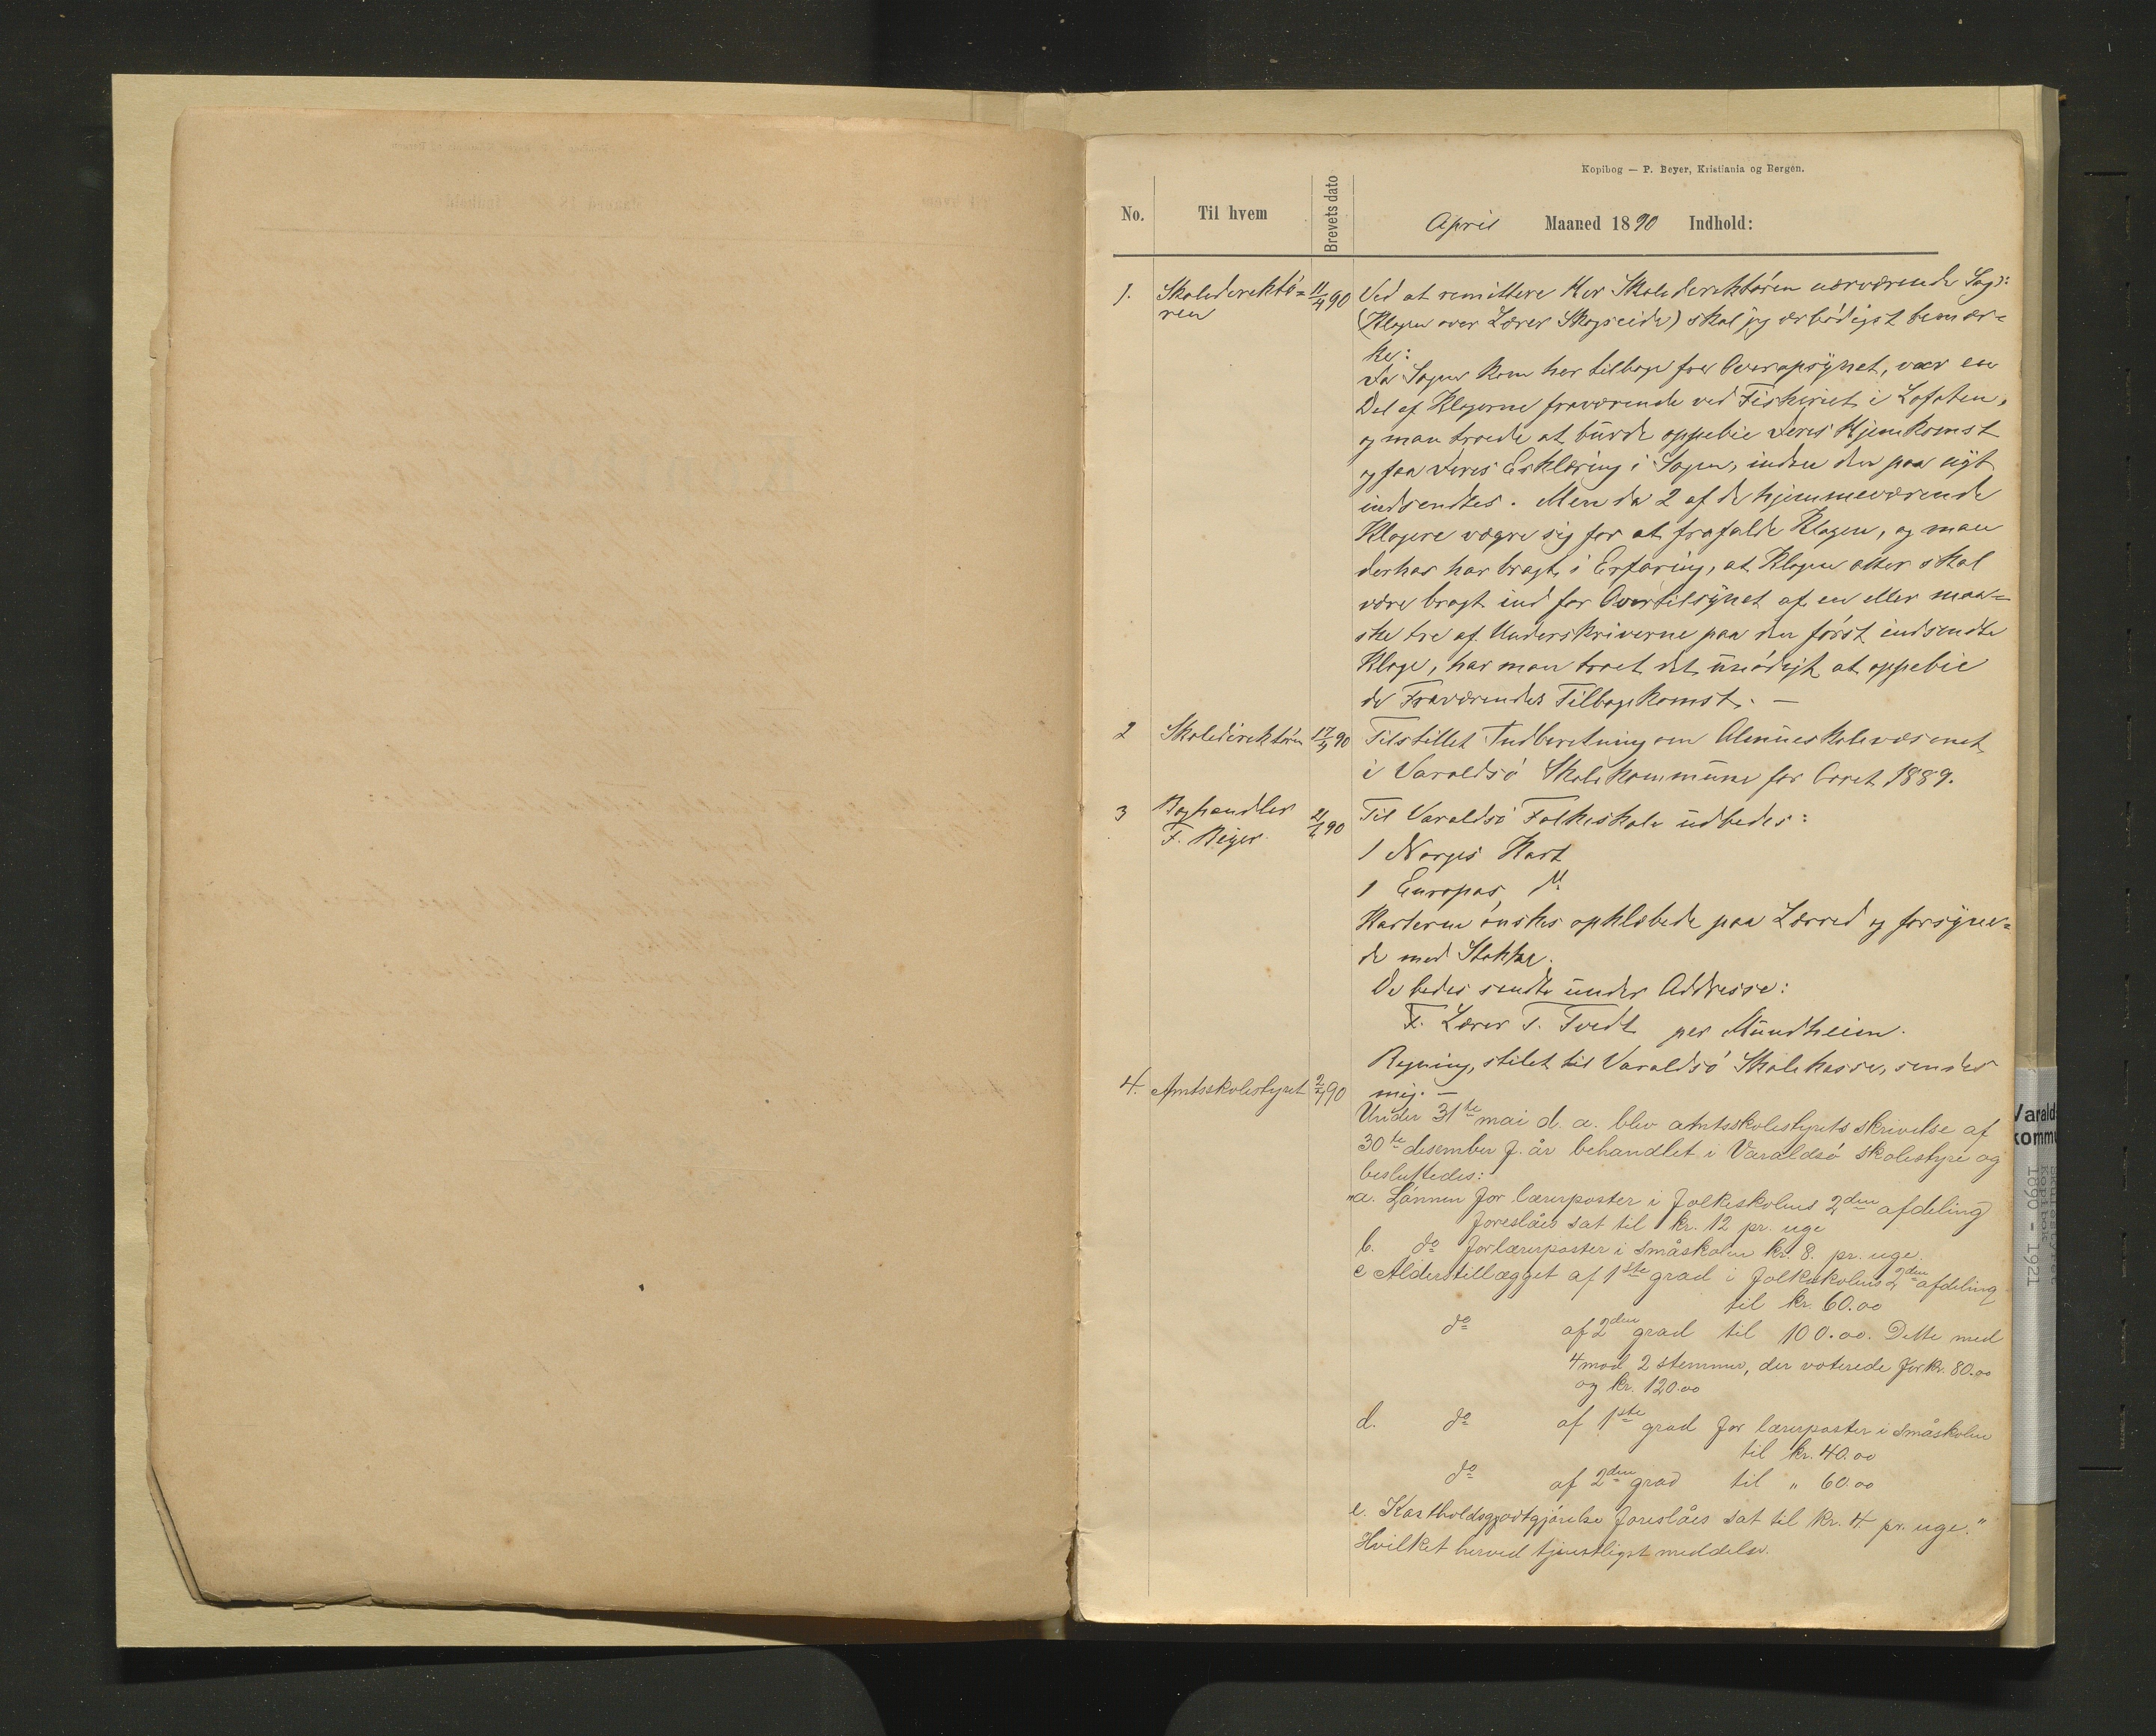 Kopibog — P. Beyer, Kristiania og Bergen.
No. Til hvem Brevets dato April Maaned 1890 Indhold:
1. Skoledirektø= 11/4 90 Ved at remittere Hr Skoledirektøren nærværende Sag:
ren (Klagen over Lærer Skogseide) skal jeg ærbødigst bemær=
ke:
Da Sagen kom her tilbage fra Overopsynet, var en
Del af Klagerne fraværende ved Fiskeriet i Lofoten,
og man troede at burde oppebie deres Hjemkomst
og faa deres Erklæring i Sagen, inden den paa nyt
indsendtes. Men da 2 af de hjemmeværende
Klagere vægre sig for at frafalde Klagen, og man
derhos har bragt i Erfaring, at Klagen atter skal
være bragt ind for Overtilsynet af en eller maa=
ske tre af Underskriverne paa den først indsendte
Klage, har man troet det unødigt at oppebie
de Fraværendes Tilbagekomst. —
2 Skoledirektøren 17/4 90 Tilstillet Indberetning om Almueskolevæsenet
i Varaldsø Skolekommune for Aaret 1889.
3 Boghandler 21/6 90 Til Varaldsø Folkeskole udbedes:
F. Beyer 1 Norges Kart
1 Europas do
Karterne ønskes opklæbede paa Lærred og forsyne=
de med Stokke.
De bedes sendte under Addresse:
F. Lærer T. Tvedt per Mundheim.
Regning, stilet til Varaldsø Skolekasse, sendes
mig. —
4. Amtsskolestyret 2/7 90
Under 31te mai d. a. blev amtsskolestyrets skrivelse af
30te desember f. år behandlet i Varaldsø skolestyre og
besluttedes:
"a. Lønnen for lærerposter i folkeskolens 2den afdeling
foreslåes sat til kr. 12 pr. uge
b. do for lærerposter i småskolen kr. 8. pr. uge.
c Alderstillægget af 1ste grad i folkeskolens 2den afdeling
til kr. 60.00
do af 2den grad til 100.00. Dette med
4 mod 2 stemmer, der voterede for kr. 80.00
og kr. 120.00
d. do af 1ste grad for lærerposter i småskolen
til kr. 40.00
do af 2den grad til " 60.00
e. Kostholdsgodtgjørelse foreslåes sat til kr. 4 pr. uge."
Hvilket herved tjenstligst meddeles.
Varalds
kommu
Kopibok
1890 - 1921